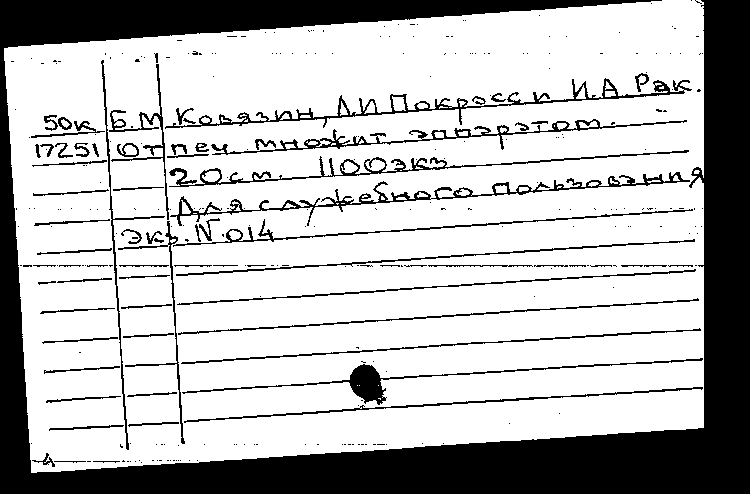 50к Б.М. Ковязин, Л.И Покрасс и И.А. Рак.
17251 Отпеч. множит. аппаратом.
20см. 1100экз.
Для служебного пользования
Экз. № 014
4